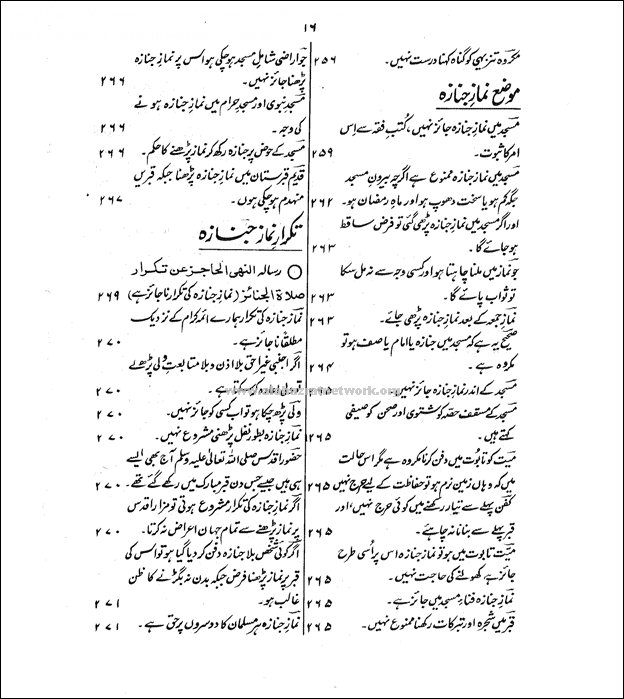 ۱۶
مکروہ تنزیہی کو گناہ کہنا درست نہیں۔ ۲۵۶
موضع نمازِ جنازہ
مسجد میں نمازِ جنازہ جائز نہیں، کُتبِ فقہ سے اِس
امر کا ثبوت۔ ۲۵۹
مسجد میں نمازِ جنازہ ممنوع ہے اگرچہ بیرونِ مسجد
جگہ کم ہو یا سخت دھوپ ہو اور ماہِ رمضان ہو۔ ۲۶۲
اور اگر مسجد میں نمازِ جنازہ پڑھی گئی تو فرض ساقط
ہو جائے گا۔ ۲۶۳
جو نماز میں ملنا چاہتا ہو اور کسی وجہ سے نہ مل سکا
تو ثواب پائے گا۔ ۲۶۳
نمازِ جمعہ کے بعد نمازِ جنازہ پڑھی جائے۔ ۲۶۳
صحیح یہ ہے کہ مسجد میں جنازہ یا امام یا صف ہو تو
مکروہ ہے۔ ۲۶۴
مسجد کے اندر نمازِ جنازہ جائز نہیں۔
مسجد کے مسقف حصّہ کو شتوی اور صحن کو صیفی
کہتے ہیں۔ ۲۶۵
میّت کو تابُوت میں دفن کرنا مکروہ ہے مگر اس حالت
میں کہ وہاں زمین نرم ہو تو حفاظت کے لیے حرج نہیں ۲۶۵
کفن پہلے سے تیار رکھنے میں کوئی حرج نہیں، اور
قبر پہلے سے بنانا نہ چاہئے۔ ۲۶۵
میّت تابوت میں ہو تو نمازِ جنازہ اس پر اُسی طرح
جائز ہے، کھولنے کی حاجت نہیں۔ ۲۶۵
نمازِ جنازہ فنائے مسجد میں جائز ہے۔ ۲۶۵
قبر میں شجرہ اور تبرکات رکھنا ممنوع نہیں۔ ۲۶۵
جو اراضی شاملِ مسجد ہو چکی ہو اس پر نمازِ جنازہ
پڑھنا جائز نہیں۔ ۲۶۶
مسجدِ نبوی اور مسجدِ حرام میں نمازِ جنازہ ہونے
کی وجہ۔ ۲۶۶
مسجد کے حوض پر جنازہ رکھ کر نماز پڑھنے کا حکم۔ ۲۶۶
قدیم قبرستان میں نمازِ جنازہ پڑھنا جبکہ قبریں
منہدم ہو چکی ہوں۔ ۲۶۷
تکرارِ نمازِ جنازہ
○ رسالہ النھی الحاجز عن تکرار
صلاۃ الجنائز (نمازِ جنازہ کی تکرار ناجائز ہے) ۲۶۹
نمازِ جنازہ کی تکرار ہمارے ائمہ کرام کے نزدیک
مطلقًا ناجائز ہے۔ ۲۷۰
اگر اجنبی غیر احق بلا اذن و بلا متابعتِ ولی پڑھے
تو ولی اعادہ کر سکتا ہے۔ ۲۷۰
ولی پڑھ چکا ہو تو اب کسی کو جائز نہیں۔ ۲۷۰
نمازِ جنازہ بطورِ نفل پڑھنی مشروع نہیں۔ ۲۷۰
حضور اقدس صلی اللہ تعالٰی علیہ وسلم آج بھی ایسے
ہی ہیں جیسے جس دن قبر مبارک میں رکھے گئے تھے۔ ۲۷۰
اگر نمازِ جنازہ کی تکرار مشروع ہوتی تو مزارِ اقدس
پر نماز پڑھنے سے تمام جہان اعراض نہ کرتا۔ ۲۷۰
اگر کوئی شخص بلا جنازہ دفن کر دیا گیا ہو تو اس کی
قبر پر نماز پڑھنا فرض جبکہ بدن نہ بگڑنے کا ظن
غالب ہو۔ ۲۷۱
نمازِ جنازہ ہر مسلمان کا دوسروں پر حق ہے۔ ۲۷۱